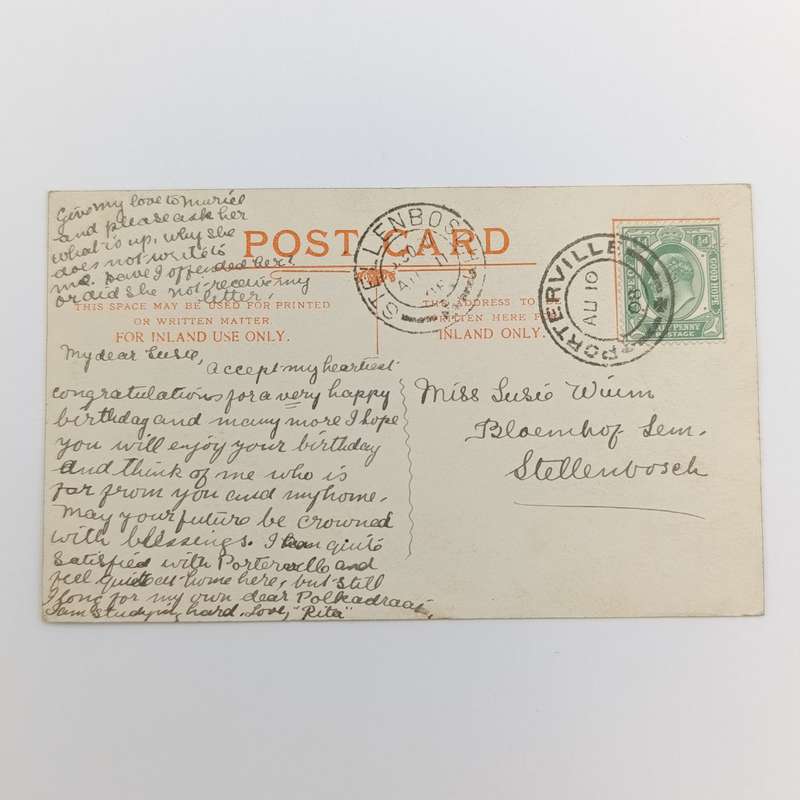 Give my love to Muriel
and please ask her
what is up, why she
does not write to
me. Have I offended her?
or did she not receive my
letter?
POST CARD
THIS SPACE MAY BE USED FOR PRINTED
OR WRITTEN MATTER.
FOR INLAND USE ONLY.
THE ADDRESS TO BE
WRITTEN HERE
INLAND ONLY.
STELLENBOSCH
AU 11
PORTERVILLE
AU 10
08
GOOD HOPE
PENNY
POSTAGE
My dear Susie,
accept my heartiest
congratulations for a very happy
birthday and many more I hope
you will enjoy your birthday
and think of me who is
far from you and my home.
May your future be crowned
with blessings. I am quite
satisfied with Porterville and
feel quite at home here, but still
I long for my own dear Polkadraai.
I am studying hard. Love, "Rita"
Miss Susie
Bloemhof Sem.
Stellenbosch